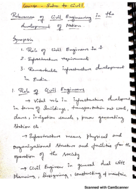 Course - Intro to Civil
Relevance of Civil Engineering in the
development of Nation
Synopsis
1. Role of Civil Engineering in I
2. Infrastructure requirement
3. Remarkable infrastructure development
in India
1. Role of Civil Engineering
Vital role in infrastructure development
in terms of buildings, transportation and roads,
dams, irrigation canals, power generating
station etc
Infrastructure means Physical and
Organizational Structure and facilities for
operation of the Society
Civil Engineering is general deal with
Planning, designing, constructing &
Scanned with CamScanner